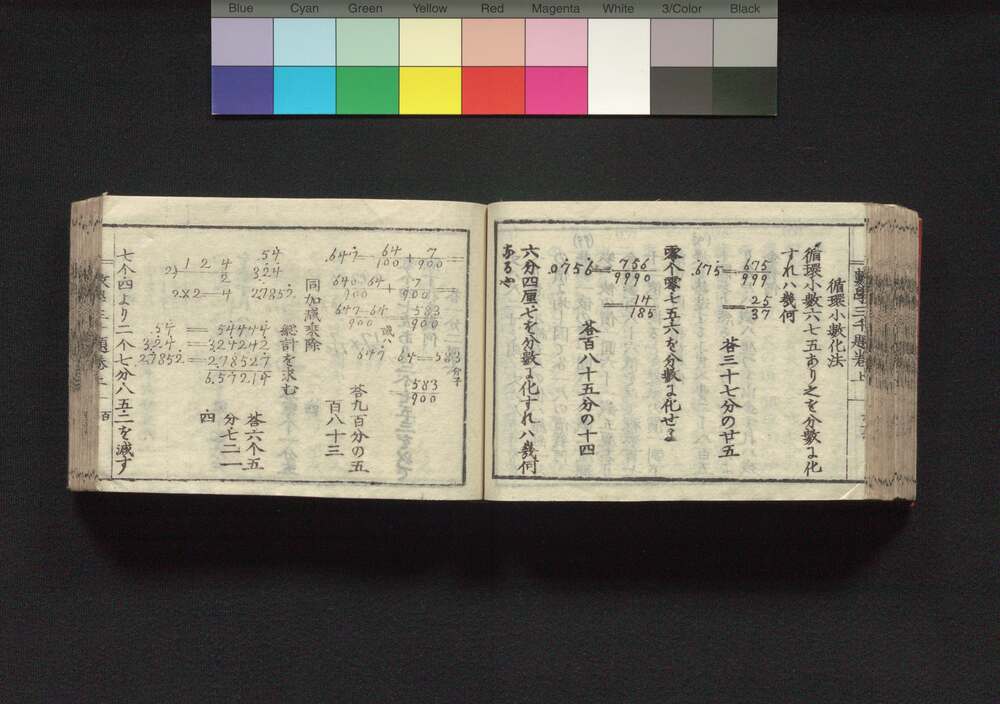 Blue Cyan Green Yellow Red Magenta White 3/Color Black
數學三千題卷上
循環小數化法
循環小數六七五あり之を分數に化
すれハ幾何
.675 = 675/999 = 25/37
答三十七分の廿五
零个零七五六を分數に化せよ
0.0756 = 756/9990 = 14/185
答百八十五分の十四
六分四厘七を分數に化すれハ幾何
あるや
.647 = 64/100 + 7/900 =
640-64/900 + 7/900 =
647-64/900 = 583/900
或ハ
647 64 = 583 分子
583/900
答九百分の五
百八十三
同加減乗除
總計を求む
.54
3.24
2.7852
1 2 4
2)
2
2×2 = 4
.54 = .544444
3.24 = 3.24242
2.7852 = 2.78527
6.57214
答六个五
分七二一
四
七个四より二个七分八五二を減す